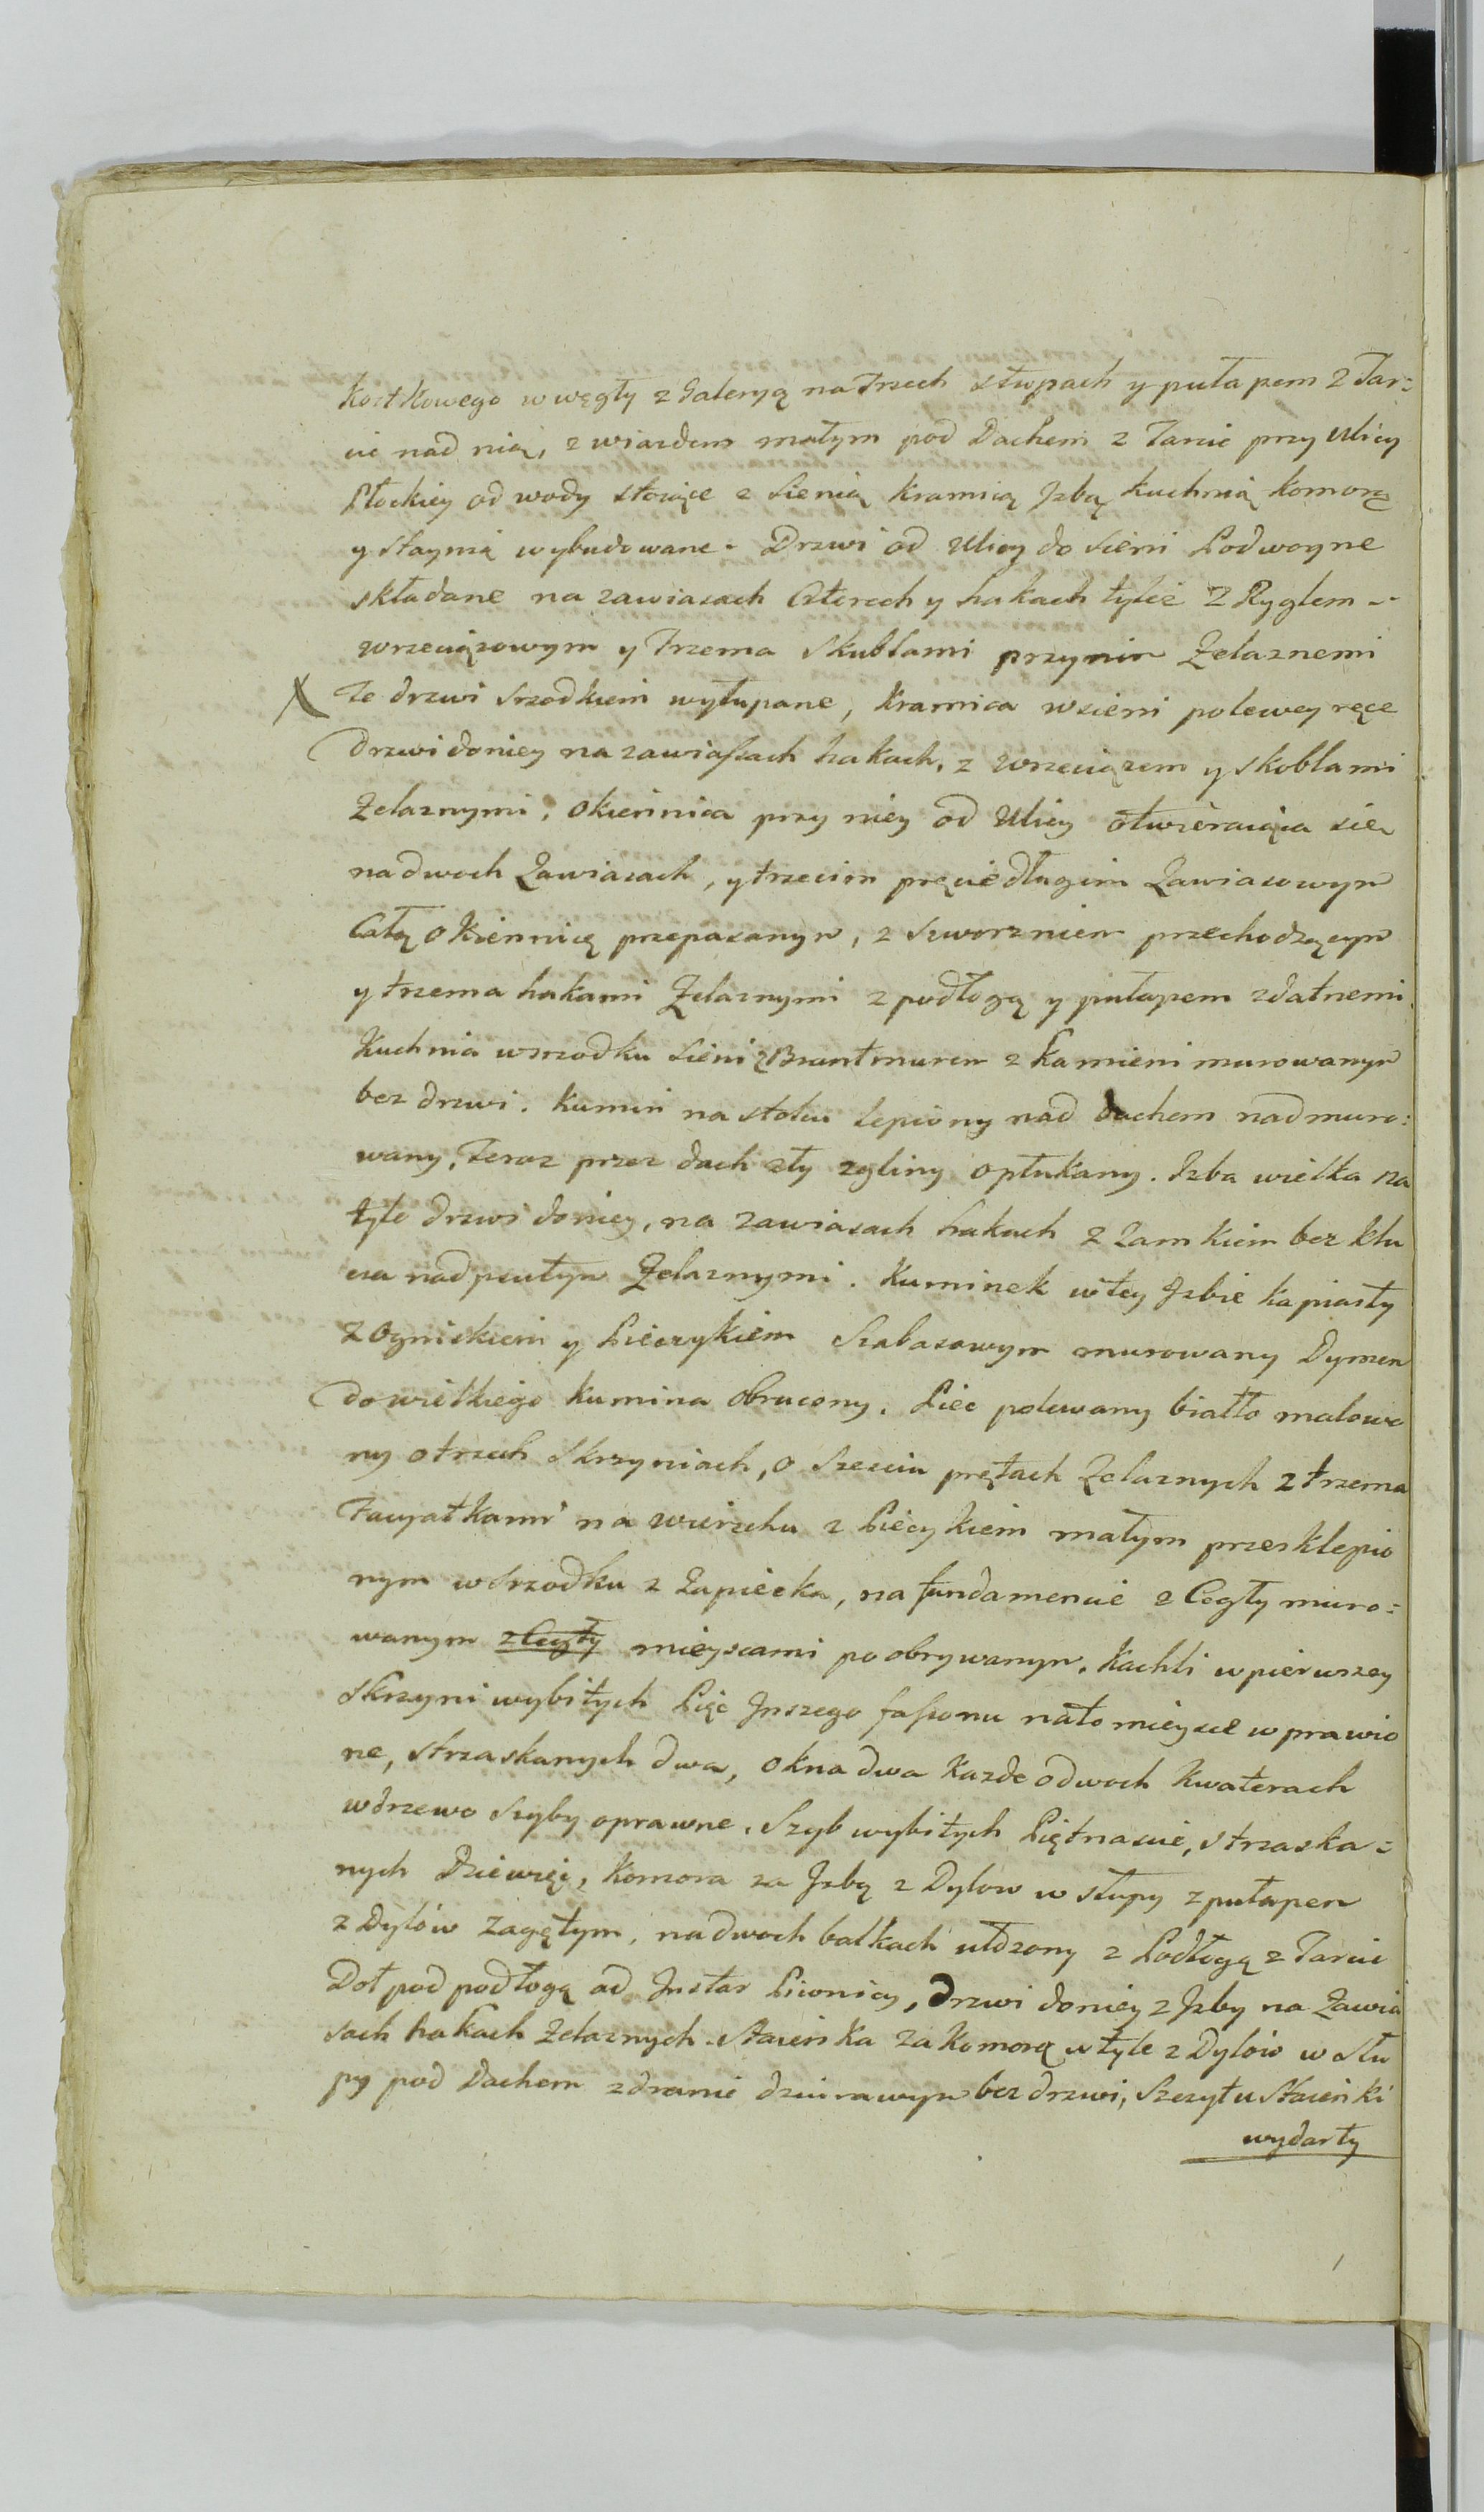 Kostkowego w węgły z Galeryą na Trzech słupach y pułapem z Tar=
cic nad nią, z wiazdem małym pod Dachem z Tarcic przy Ulicy
Płockiey od wody stoiące z Sienią Kramicą Jzbą kuchnią komorą
y staynią wybudowane. Drzwi od Ulicy do sieni Podwoyne
składane na zawiasach Czterech y hakach tylić z Ryglem
wrzeciązowym y Trzema Skublami przynim Zelaznemi
X Te drzwi srzodkiem wyłupane, Kramica wsieni polewey ręce
drzwi doniey na zawiaſsach hakach, z wrzeciązem y skoblami
Zelaznymi, Okiennica przy niey od Ulicy otwieraiąca się
na dwoch Zawiasach, y trzecim pręcie długim Zawiasowym
Całą okiennicę przepasanym, z Sworzniem przechodzącym
y trzema hakami Zelaznymi z podłogą y pułapem zdatnemi.
Kuchnia wsrzodku Sieni z Brantmurem z kamieni murowanym
bez drzwi. kumin na stolcu lepiony nad dachem nadmuro=
wany, Teraz przez dach zły zgliny opłukany. Jzba wielka na
tyle drzwi doniey, na zawiasach hakach z Zamkiem bez klu
cza nadpsutym Zelaznymi. Kuminek wtey Jzbie kapiasty
z Ogniskiem y Piecykiem Szabasowym murowany Dymem
do wielkiego kumina obrucony. Piec polewany biało malowa
ny o trzech Skrzyniach, o Szesciu prętach Zelaznych z trzema
Facyatkami na wierzchu z Piecykiem małym przesklepio
nym w srzodku z Zapiecka, na fundamencie z Cegły muro=
wanym z Cegły mieyscami poobrywanym. Kachli w pierwszey
Skrzyni wybitych Pięć Jnszego faſsonu nato mieysce wprawio
ne, strzaskanych dwa, okna dwa kazde o dwoch kwaterach
w drzewo szyby oprawne. Szyb wybitych Piętnascie, strzaska=
nych Dziewięć, Komora za Jzbą z Dylow w słupy z pułapem
z Dylów zagętym, na dwoch balkach utdzony z Podłogą z Tarcic
Doł pod podłogą ad Jnstar Piwnicy, Drzwi doniey z Jzby na Zawia
sach hakach Zelaznych. Staienka Za Komorą w tyle z Dylów w słu
py pod Dachem z dranic dziurawym bez drzwi, Szczyt u Staienki
wydarty